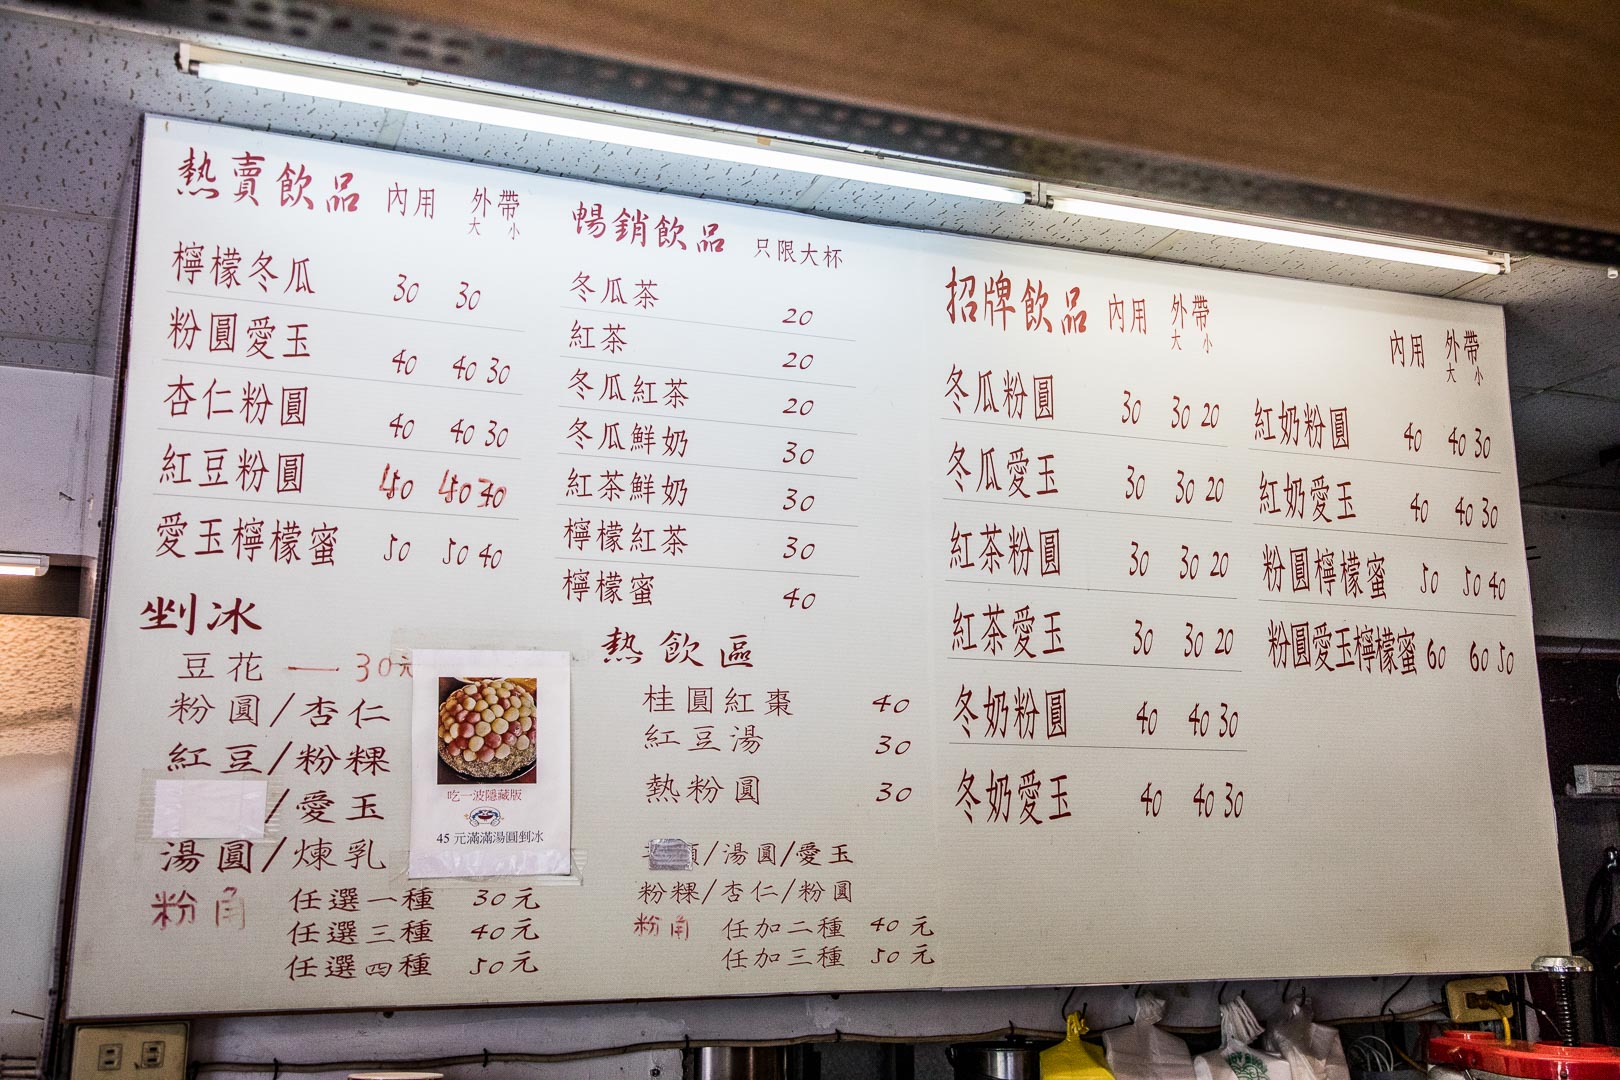 熱賣飲品 內用 外帶
大 小
檸檬冬瓜 30 30
粉圓愛玉 40 40 30
杏仁粉圓 40 40 30
紅豆粉圓
愛玉檸檬蜜 50 50 40
暢銷飲品 只限大杯
冬瓜茶 20
紅茶 20
冬瓜紅茶 20
冬瓜鮮奶 30
紅茶鮮奶 30
檸檬紅茶 30
檸檬蜜 40
招牌飲品 內用 外帶
大 小
冬瓜粉圓 30 30 20
冬瓜愛玉 30 30 20
紅茶粉圓 30 30 20
紅茶愛玉 30 30 20
冬奶粉圓 40 40 30
冬奶愛玉 40 40 30
內用 外帶
大 小
紅奶粉圓 40 40 30
紅奶愛玉 40 40 30
粉圓檸檬蜜 50 50 40
粉圓愛玉檸檬蜜 60 60 50
剉冰
豆花 — 30元
粉圓/杏仁
紅豆/粉粿
/愛玉
湯圓/煉乳
粉角 任選一種 30元
任選三種 40元
任選四種 50元
吃一波隱藏版
45 元滿滿湯圓剉冰
熱飲區
桂圓紅棗 40
紅豆湯 30
熱粉圓 30
/湯圓/愛玉
粉粿/杏仁/粉圓
粉角 任加二種 40元
任加三種 50元